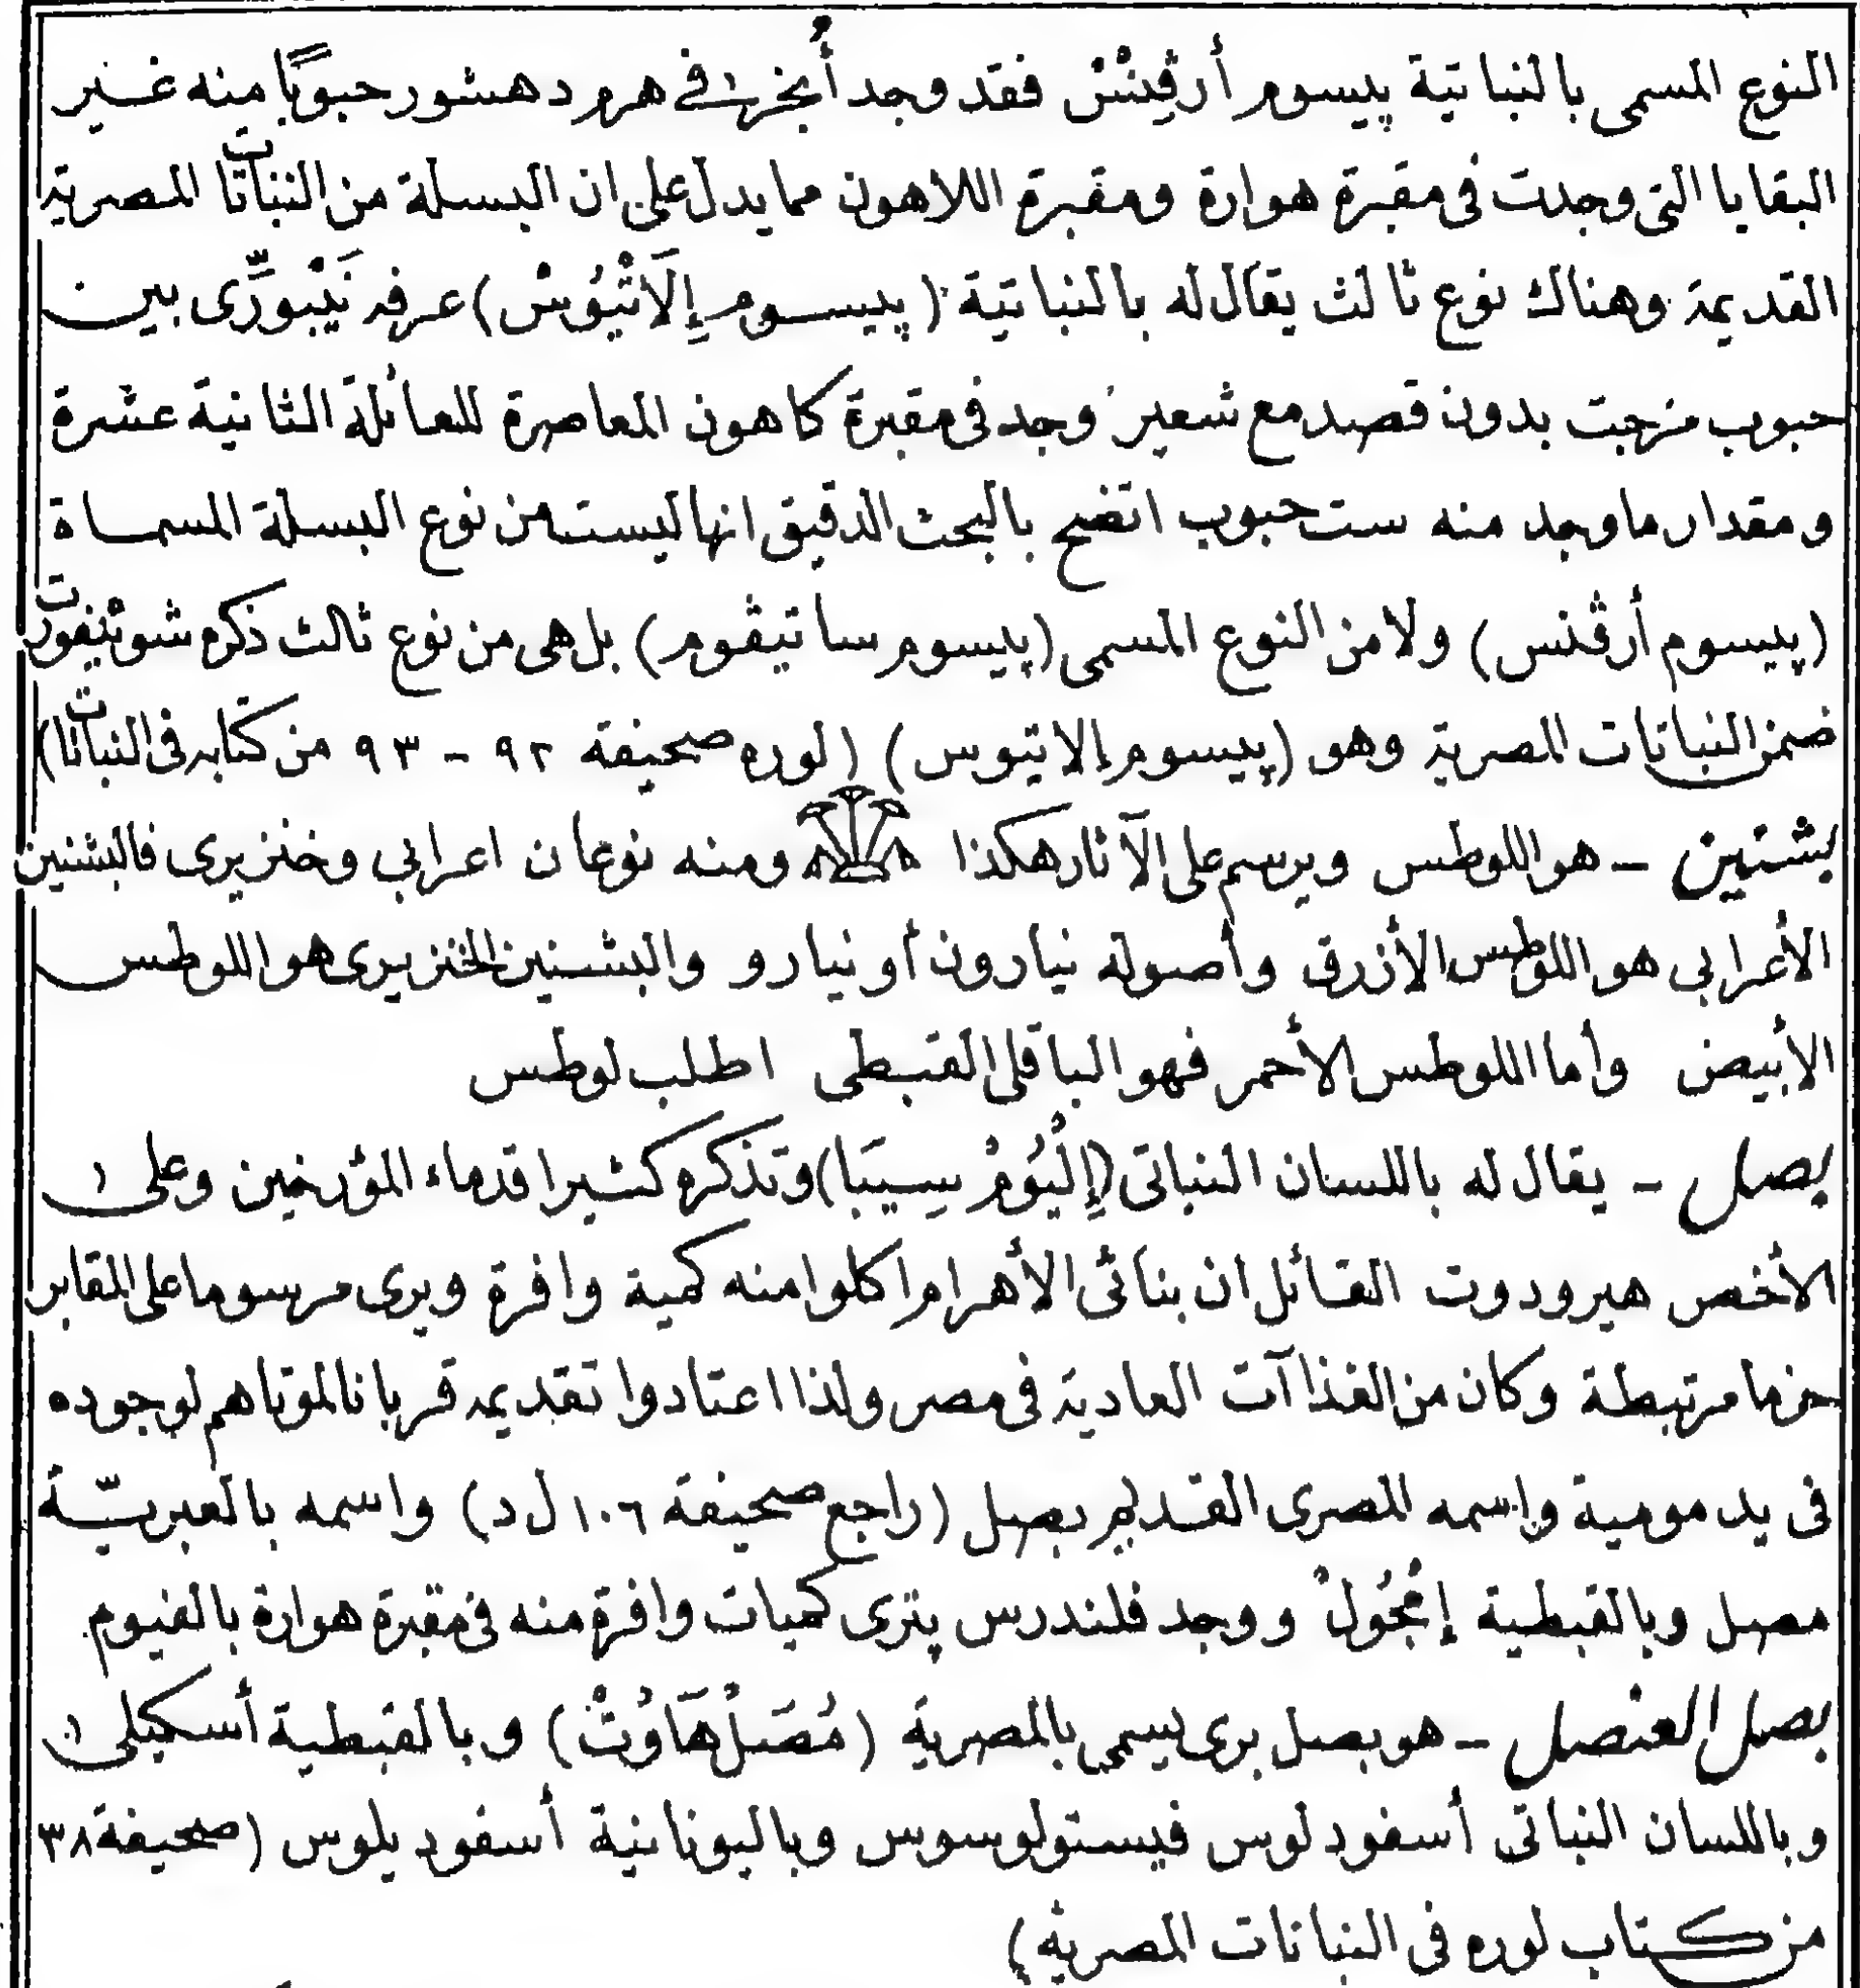 النوع المسمى بالنباتية پيسوم أرڤِنْسْ فقد وجد أُنجْر في هرم دهشور حبوبًا منه غير
البقايا التى وجدت فى مقبرة هوارة ومقبرة اللاهون مما يدل على ان البسلة من النباتات المصرية
القديمة وهناك نوع ثالث يقال له بالنباتية (پيسوم إِلَاتْيُوسْ) عرفه نَيْبورِّى بين
حبوب مزجت بدون قصد مع شعير وجد فى مقبرة كاهون المعاصرة للعائلة الثانية عشرة
ومقدار ما وجد منه ست حبوب اتضح بالبحث الدقيق انها ليست من نوع البسلة المسماة
(پيسوم أرڤنس) ولا من النوع المسمى (پيسوم ساتيڤوم) بل هى من نوع ثالث ذكره شوينفورت
ضمن النباتات المصرية وهو (پيسوم إلاتيوس) (لوره صحيفة ٩٢ - ٩٣ من كتابه فى النباتات)
بشنين - هو اللوطس ويرسم على الآثار هكذا ومنه نوعان اعرابي وخنزيرى فالبشنين
الأعرابي هو اللوطس الأزرق وأصوله نيارون أو نيارو والبشنين الخنزيرى هو اللوطس
الأبيض وأما اللوطس الأحمر فهو الباقلى القبطى اطلب لوطس
بصل - يقال له باللسان النباتى (إِلْيُومْ سِيبَا) وتذكره كثيرا قدماء المؤرخين وعلى
الأخص هيرودوت القائل ان بنائى الأهرام اكلوا منه كمية وافرة ويرى مرسوما على المقابر
حزما مرتبطة وكان من الغذاآت العادية فى مصر ولذا اعتادوا تقديمه قربانا لموتاهم لوجوده
فى يد مومية واسمه المصرى القديم بصل (راجع صحيفة ١٠٦ ل د) واسمه بالعبريّة
مصل وبالقبطية إمْجُولْ ووجد فلندرس پترى كميات وافرة منه فى مقبرة هوارة بالفيوم
بصل العنصل - هو بصل برى يسمى بالمصرية (مُصَلْ هَاوُتْ) وبالقبطية أسكيلى
وباللسان النباتى أسفودلوس فيستولوسوس وباليونانية أسفوديلوس (صحيفة ٣٨
من كتاب لوره فى النباتات المصرية)